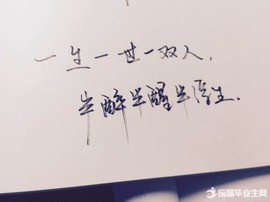 一生一世一双人,
半醉半醒半浮生.
应届毕业生网